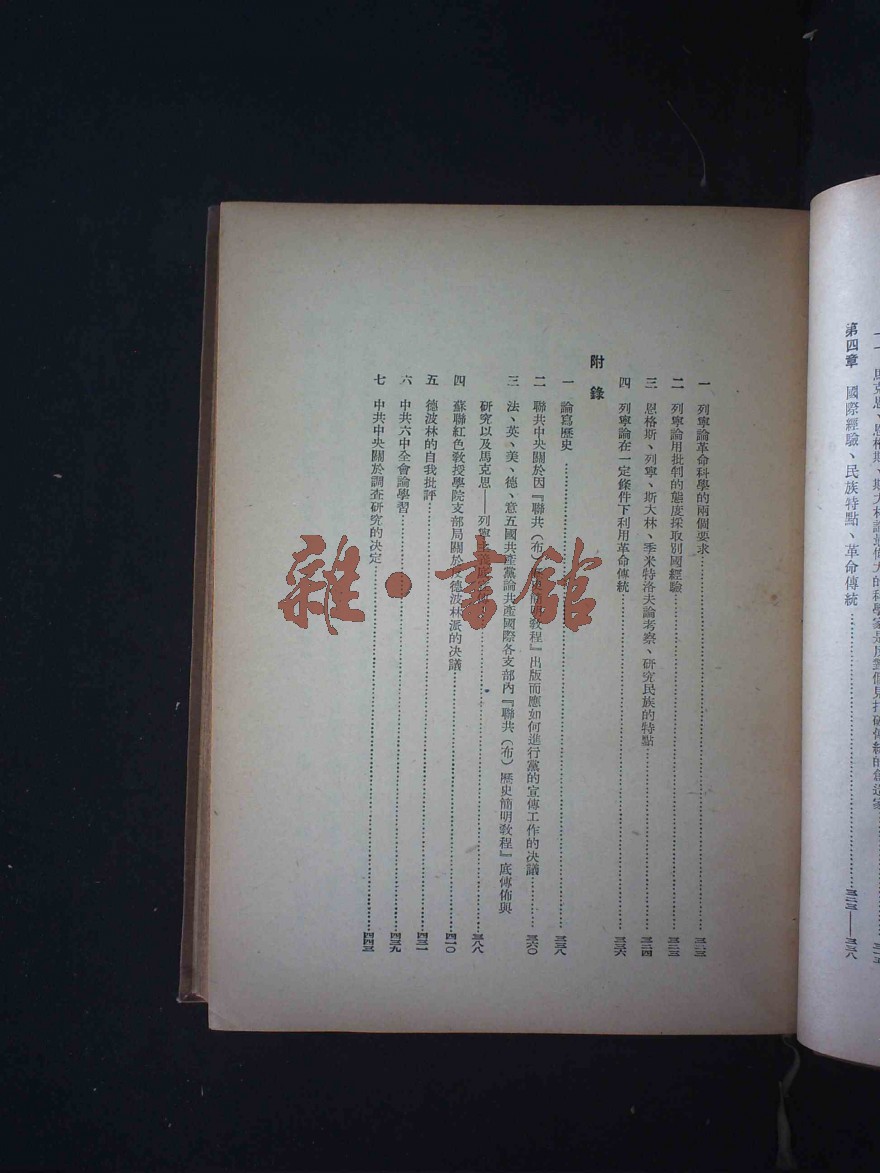 馬克思、恩格斯、斯大林
第四章 國際經驗、民族特點、革命傳統……三二三——三三八
一 列寧論革命科學的兩個要求……三二三
二 列寧論用批判的態度採取別國經驗……三二三
三 恩格斯、列寧、斯大林、季米特洛夫論考察、研究民族的特點……三二四
四 列寧論在一定條件下利用革命傳統……三三六
附錄
一 論寫歷史……三三八
二 聯共中央關於因『聯共(布)歷史簡明教程』出版而應如何進行黨的宣傳工作的决議……三六〇
三 法、英、美、德、意五國共產黨論共產國際各支部內『聯共(布)歷史簡明教程』底傳佈與
研究以及馬克思——列寧主義底……三八八
四 蘇聯紅色教授學院支部局關於反德波林派的决議……四一〇
五 德波林的自我批評……四三一
六 中共六中全會論學習……四三九
七 中共中央關於調查研究的决定……四四三
雜·書館